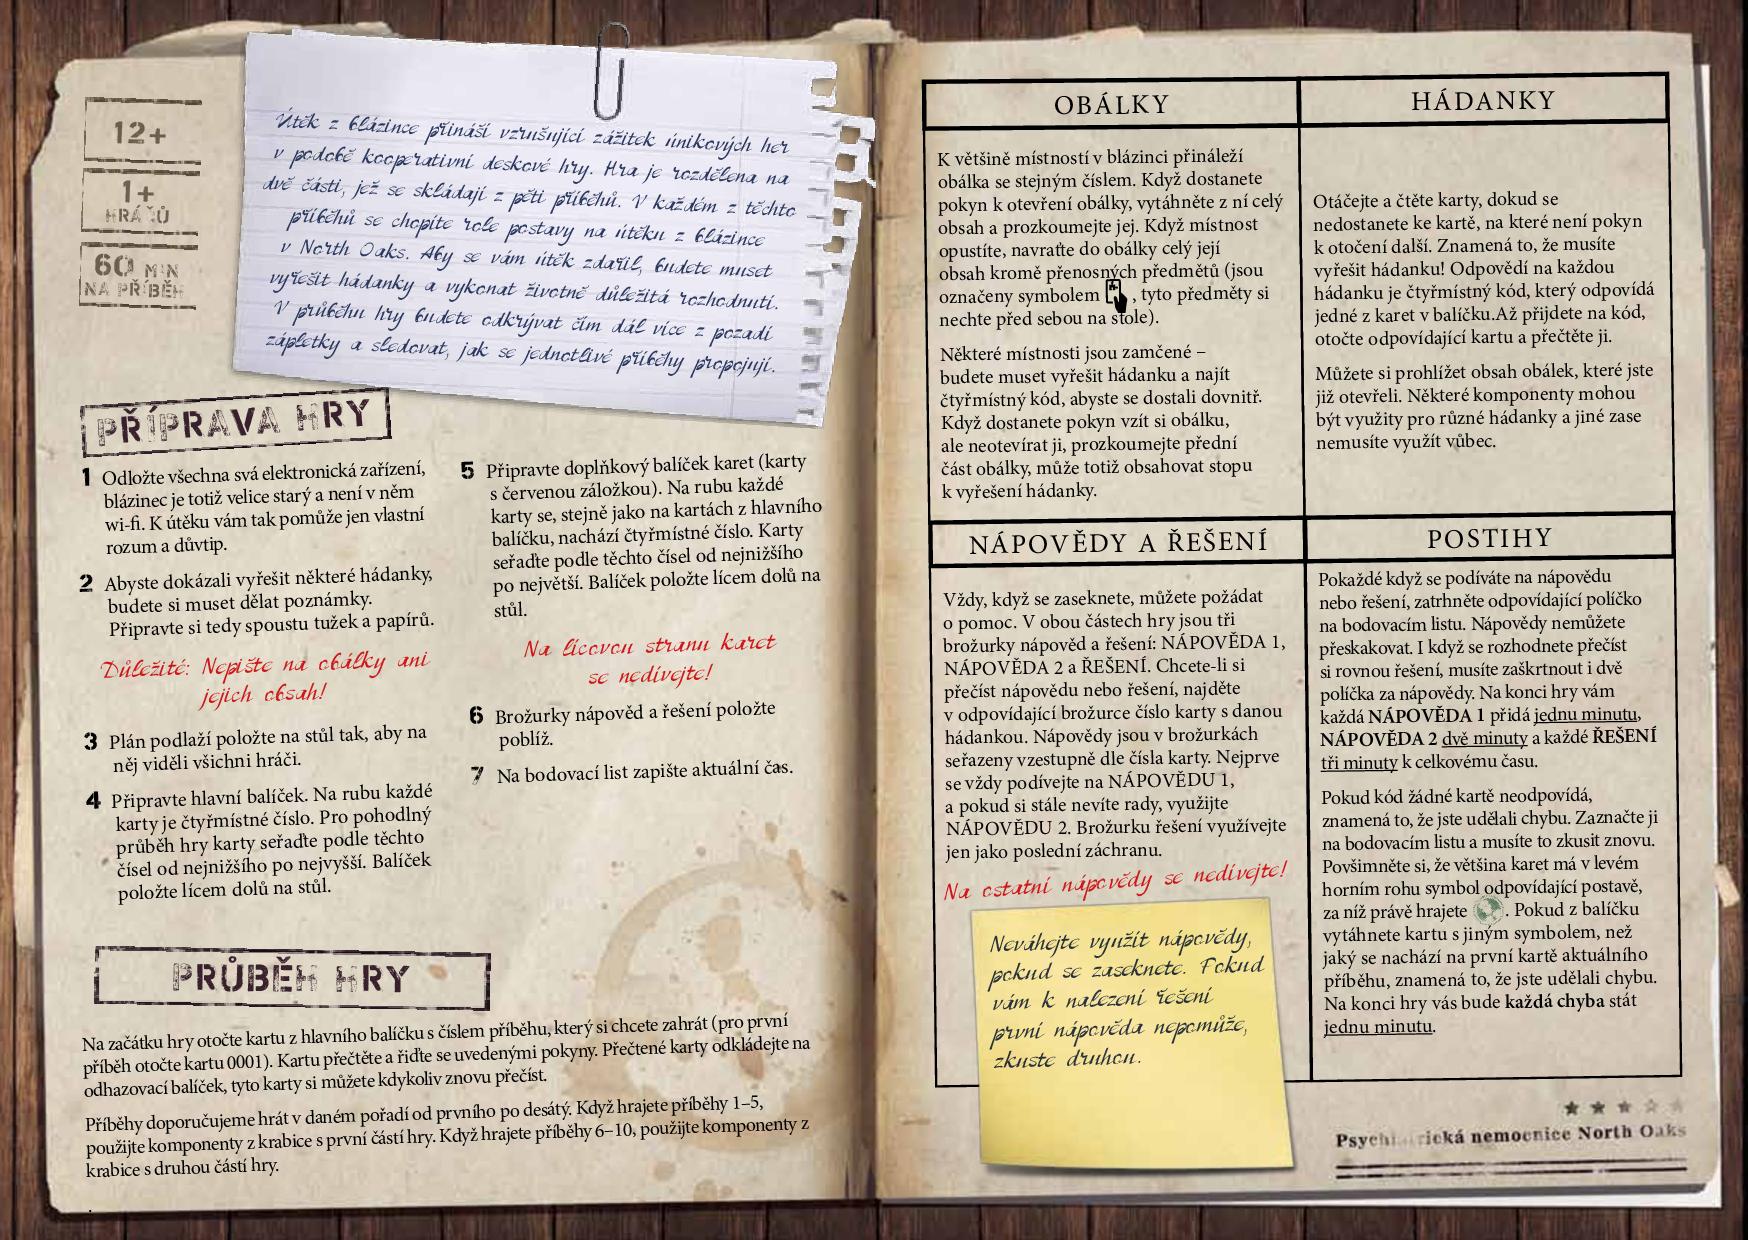 12+
1+
HRÁČŮ
60 MIN
NA PŘÍBĚH
Útěk z blázince přináší vzrušující zážitek únikových her
v podobě kooperativní deskové hry. Hra je rozdělena na
dvě části, jež se skládají z pěti příběhů. V každém z těchto
příběhů se chopíte role postavy na útěku z blázince
v North Oaks. Aby se vám útěk zdařil, budete muset
vyřešit hádanky a vykonat životně důležitá rozhodnutí.
V průběhu hry budete odkrývat čím dál více z pozadí
zápletky a sledovat, jak se jednotlivé příběhy propojují.
PŘÍPRAVA HRY
1 Odložte všechna svá elektronická zařízení,
blázinec je totiž velice starý a není v něm
wi-fi. K útěku vám tak pomůže jen vlastní
rozum a důvtip.
2 Abyste dokázali vyřešit některé hádanky,
budete si muset dělat poznámky.
Připravte si tedy spoustu tužek a papírů.
Důležité: Nepište na obálky ani
jejich obsah!
3 Plán podlaží položte na stůl tak, aby na
něj viděli všichni hráči.
4 Připravte hlavní balíček. Na rubu každé
karty je čtyřmístné číslo. Pro pohodlný
průběh hry karty seřaďte podle těchto
čísel od nejnižšího po nejvyšší. Balíček
položte lícem dolů na stůl.
5 Připravte doplňkový balíček karet (karty
s červenou záložkou). Na rubu každé
karty se, stejně jako na kartách z hlavního
balíčku, nachází čtyřmístné číslo. Karty
seřaďte podle těchto čísel od nejnižšího
po největší. Balíček položte lícem dolů na
stůl.
Na lícovou stranu karet
se nedívejte!
6 Brožurky nápověd a řešení položte
poblíž.
7 Na bodovací list zapište aktuální čas.
PRŮBĚH HRY
Na začátku hry otočte kartu z hlavního balíčku s číslem příběhu, který si chcete zahrát (pro první
příběh otočte kartu 0001). Kartu přečtěte a řiďte se uvedenými pokyny. Přečtené karty odkládejte na
odhazovací balíček, tyto karty si můžete kdykoliv znovu přečíst.
Příběhy doporučujeme hrát v daném pořadí od prvního po desátý. Když hrajete příběhy 1–5,
použijte komponenty z krabice s první částí hry. Když hrajete příběhy 6–10, použijte komponenty z
krabice s druhou částí hry.
OBÁLKY
K většině místností v blázinci přináleží
obálka se stejným číslem. Když dostanete
pokyn k otevření obálky, vytáhněte z ní celý
obsah a prozkoumejte jej. Když místnost
opustíte, navraťte do obálky celý její
obsah kromě přenosných předmětů (jsou
označeny symbolem , tyto předměty si
nechte před sebou na stole).
Některé místnosti jsou zamčené –
budete muset vyřešit hádanku a najít
čtyřmístný kód, abyste se dostali dovnitř.
Když dostanete pokyn vzít si obálku,
ale neotevírat ji, prozkoumejte přední
část obálky, může totiž obsahovat stopu
k vyřešení hádanky.
HÁDANKY
Otáčejte a čtěte karty, dokud se
nedostanete ke kartě, na které není pokyn
k otočení další. Znamená to, že musíte
vyřešit hádanku! Odpovědí na každou
hádanku je čtyřmístný kód, který odpovídá
jedné z karet v balíčku.Až přijdete na kód,
otočte odpovídající kartu a přečtěte ji.
Můžete si prohlížet obsah obálek, které jste
již otevřeli. Některé komponenty mohou
být využity pro různé hádanky a jiné zase
nemusíte využít vůbec.
NÁPOVĚDY A ŘEŠENÍ
Vždy, když se zaseknete, můžete požádat
o pomoc. V obou částech hry jsou tři
brožurky nápověd a řešení: NÁPOVĚDA 1,
NÁPOVĚDA 2 a ŘEŠENÍ. Chcete-li si
přečíst nápovědu nebo řešení, najděte
v odpovídající brožurce číslo karty s danou
hádankou. Nápovědy jsou v brožurkách
seřazeny vzestupně dle čísla karty. Nejprve
se vždy podívejte na NÁPOVĚDU 1,
a pokud si stále nevíte rady, využijte
NÁPOVĚDU 2. Brožurku řešení využívejte
jen jako poslední záchranu.
Na ostatní nápovědy se nedívejte!
Neváhejte využít nápovědy,
pokud se zaseknete. Pokud
vám k nalezení řešení
první nápověda nepomůže,
zkuste druhou.
POSTIHY
Pokaždé když se podíváte na nápovědu
nebo řešení, zatrhněte odpovídající políčko
na bodovacím listu. Nápovědy nemůžete
přeskakovat. I když se rozhodnete přečíst
si rovnou řešení, musíte zaškrtnout i dvě
políčka za nápovědy. Na konci hry vám
každá NÁPOVĚDA 1 přidá jednu minutu,
NÁPOVĚDA 2 dvě minuty a každé ŘEŠENÍ
tři minuty k celkovému času.
Pokud kód žádné kartě neodpovídá,
znamená to, že jste udělali chybu. Zaznačte ji
na bodovacím listu a musíte to zkusit znovu.
Povšimněte si, že většina karet má v levém
horním rohu symbol odpovídající postavě,
za níž právě hrajete . Pokud z balíčku
vytáhnete kartu s jiným symbolem, než
jaký se nachází na první kartě aktuálního
příběhu, znamená to, že jste udělali chybu.
Na konci hry vás bude každá chyba stát
jednu minutu.
Psychiatrická nemocnice North Oaks